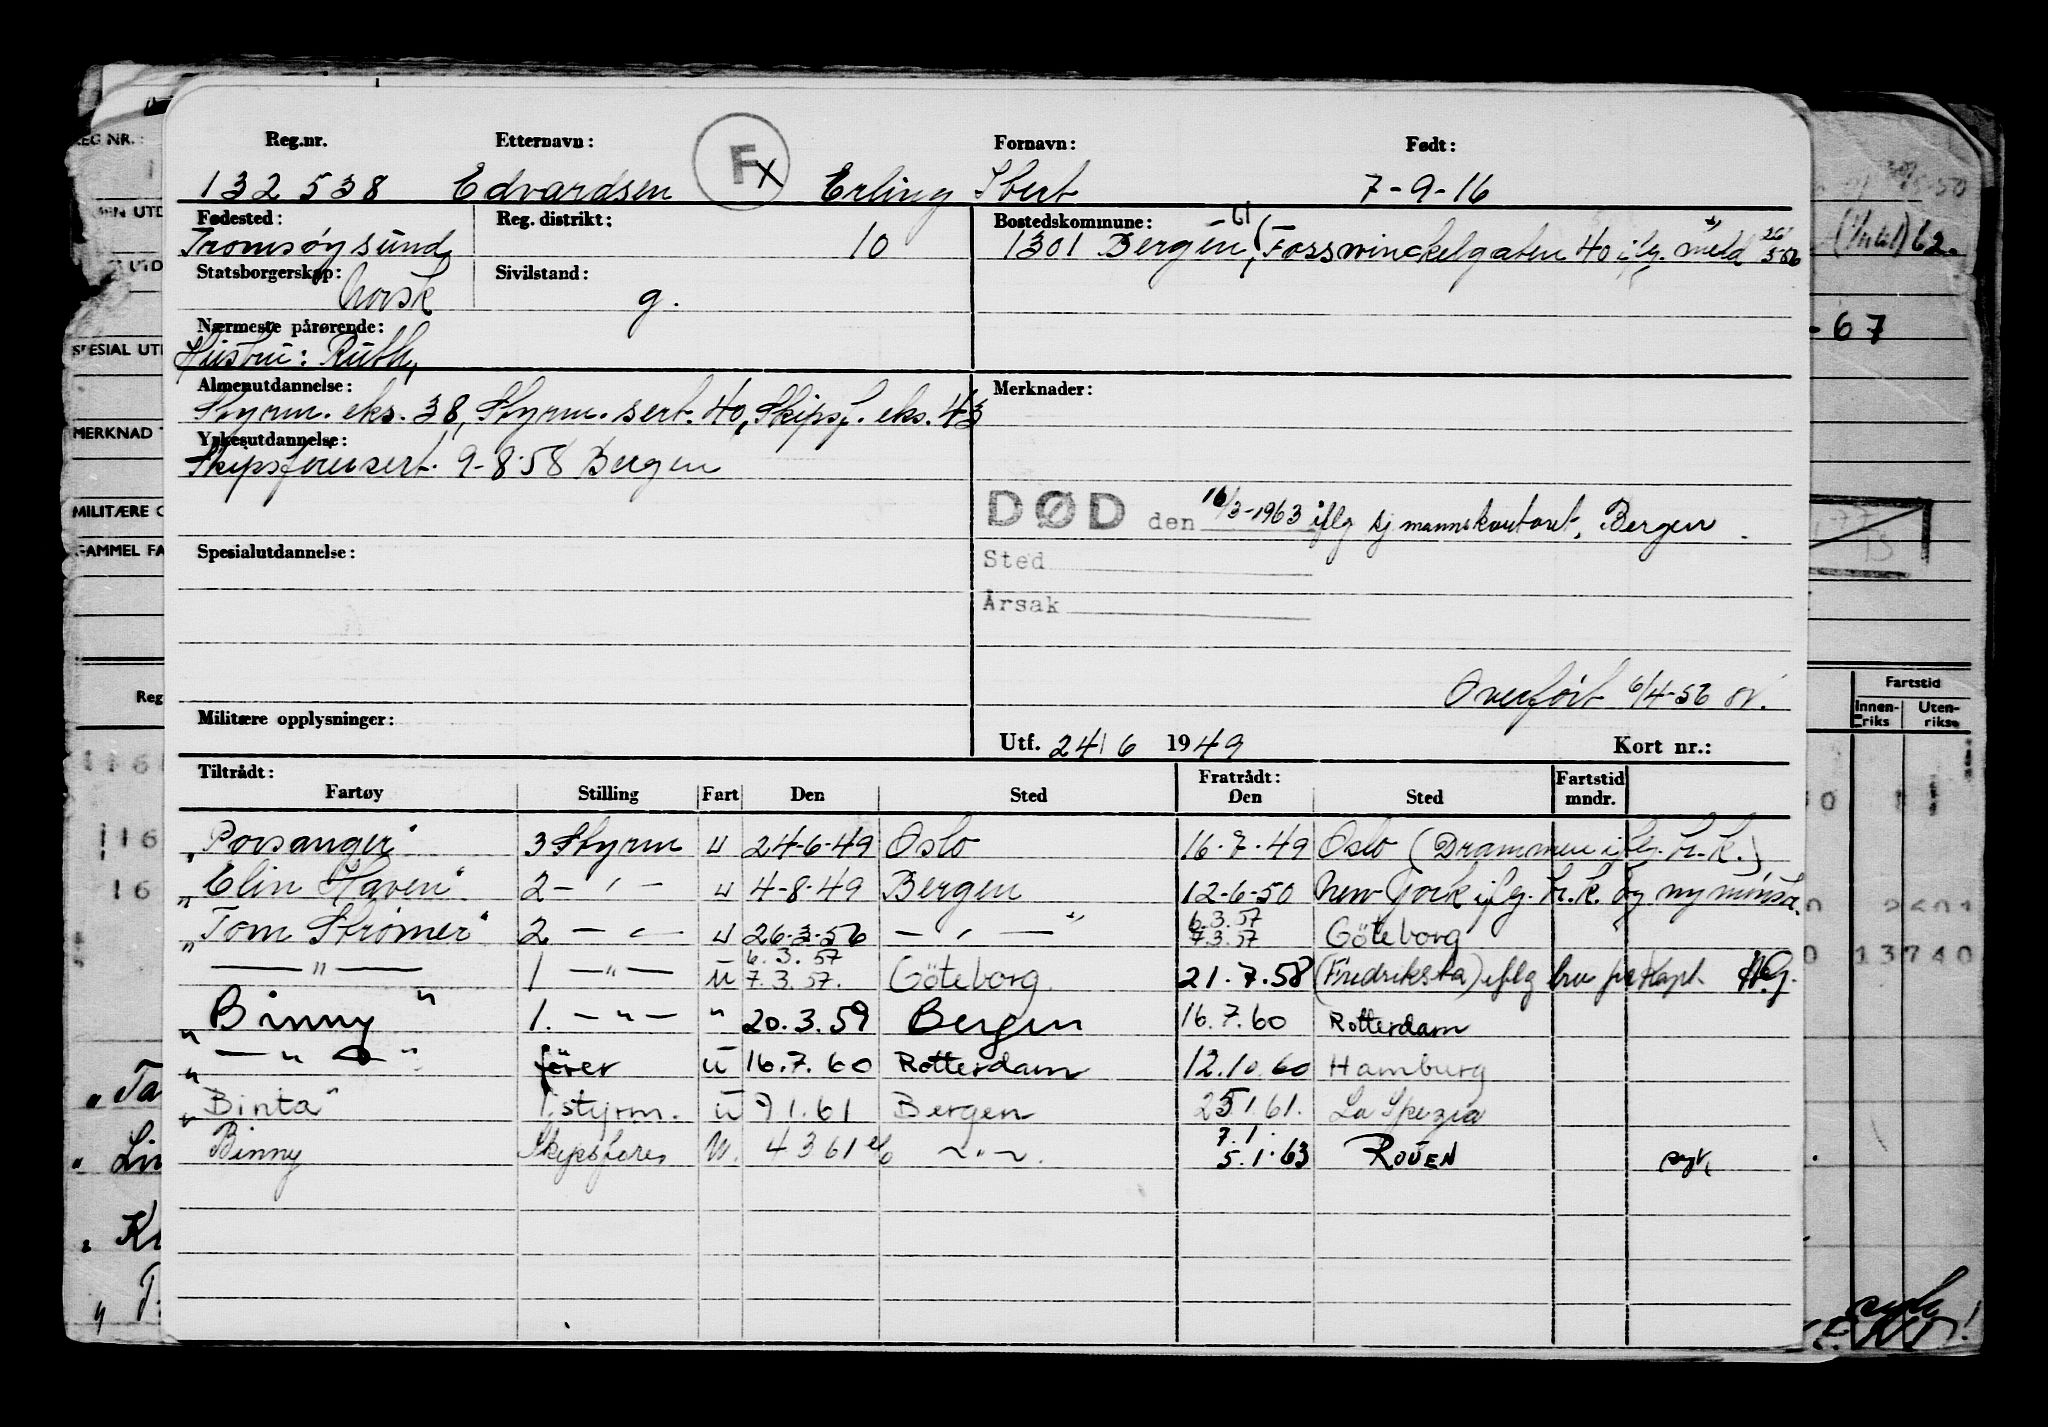 Reg.nr. Etternavn: Fornavn: Født:
132538 Edvardsen F Erling Ibert 7-9-16
Fødested: Reg. distrikt: Bostedskommune:
Tromsøysund 10 1301 Bergen, Fosswinckelgaten 40 iflg. meld
Statsborgerskap: Sivilstand:
Norsk g.
Nærmeste pårørende:
Hustru: Ruth,
Almenutdannelse: Merknader:
Styrm. eks. 38, Styrm. sert. 40, Skipsf. eks. 43
Yrkesutdannelse:
Skipsførersert. 9-8-58 Bergen
DØD den 16/3-1963 iflg sjømannskontoret, Bergen.
Spesialutdannelse: Sted
Årsak
Overført 6/4-56
Militære opplysninger:
Utf. 24/6 1949 Kort nr.:
Tiltrådt: Fratrådt: Fartstid
Fartøy Stilling Fart Den Sted Den Sted mndr.
"Porsanger" 3 Styrm u 24-6-49 Oslo 16.7.49 Oslo (Drammen iflg. h.k.)
"Elin Haven" 2 - " - u 4-8-49 Bergen 12-6-50 New York iflg. h.k. og mynmønstr.
"Tom Strømer" 2 - " - u 26-3-56 - " - 6.3.57 7.3.57 Göteborg
- " - 1 - " - u 6.3.57 7.3.57. Göteborg 21.7.58 (Fredrikstad) iflg
"Binny" 1. - " - " 20.3.59 Bergen 16.7.60 Rotterdam
" - " - " fører u 16.7.60 Rotterdam 12.10.60 Hamburg
"Binta" 1. styrm. u 7 1.61 Bergen 25 1.61. La Spezia
Binny Skipsfører u. 4 3 61 - " - 7.1. 5.1.63 ROUEN
REG NR.:
SPESIAL UTD
MERKNAD
MILITÆRE O
GAMMEL FA
Reg
-67
Fartstid
Innen-riks Uten-riks
13740